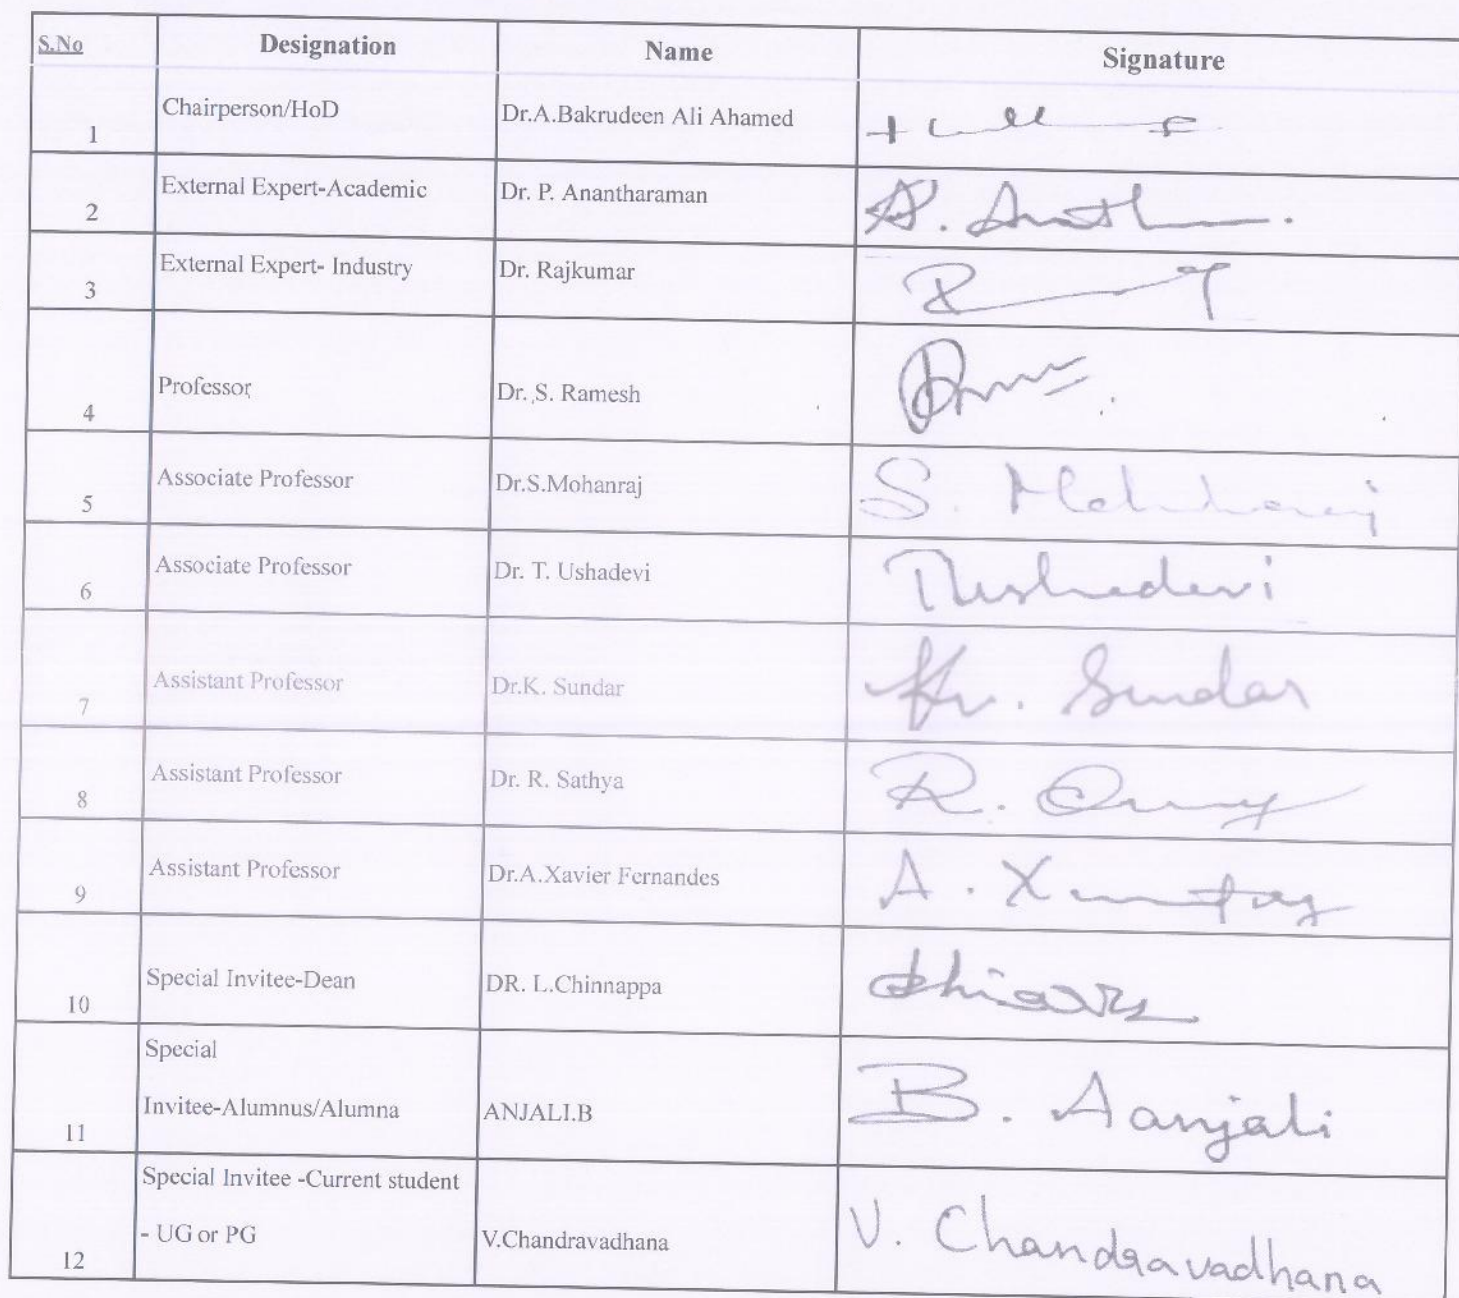 S.No Designation Name Signature
1 Chairperson/HoD Dr.A.Bakrudeen Ali Ahamed
2 External Expert-Academic Dr. P. Anantharaman
3 External Expert- Industry Dr. Rajkumar
4 Professor Dr. S. Ramesh
5 Associate Professor Dr.S.Mohanraj S. Mohanraj
6 Associate Professor Dr. T. Ushadevi TUshadevi
7 Assistant Professor Dr.K. Sundar K. Sundar
8 Assistant Professor Dr. R. Sathya R.
9 Assistant Professor Dr.A.Xavier Fernandes A. X
10 Special Invitee-Dean DR. L.Chinnappa
Special
11 Invitee-Alumnus/Alumna ANJALI.B B. Aanjali
Special Invitee -Current student
12 - UG or PG V.Chandravadhana V. Chandravadhana